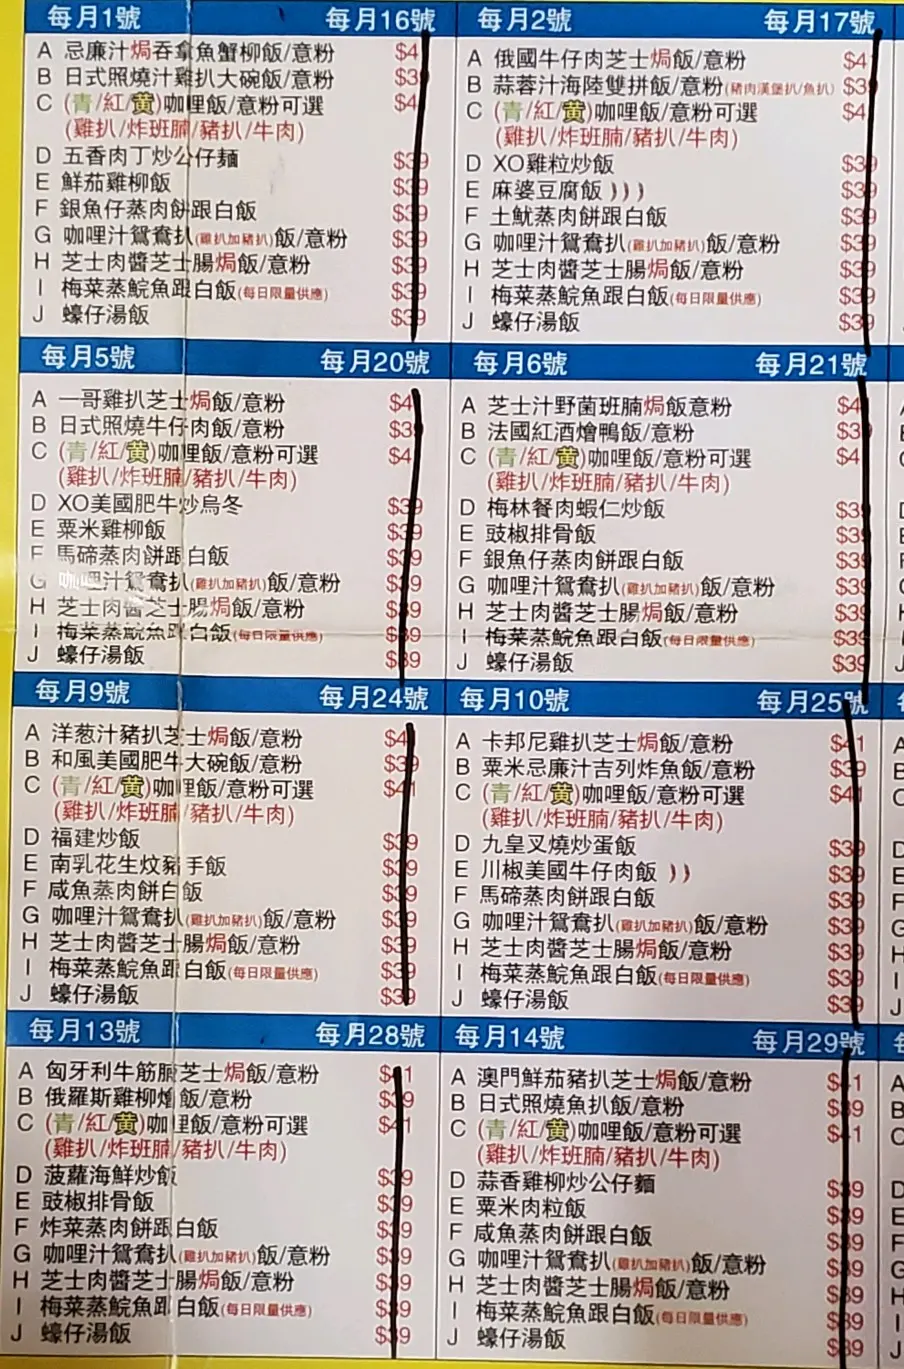 每月1號 每月16號
A 忌廉汁焗吞拿魚蟹柳飯/意粉 $4
B 日式照燒汁雞扒大碗飯/意粉 $39
C (青/紅/黄)咖哩飯/意粉可選 $4
(雞扒/炸班腩/豬扒/牛肉)
D 五香肉丁炒公仔麵 $39
E 鮮茄雞柳飯 $39
F 銀魚仔蒸肉餅跟白飯 $39
G 咖哩汁鴛鴦扒(雞扒加豬扒)飯/意粉 $39
H 芝士肉醬芝士腸焗飯/意粉 $39
I 梅菜蒸鯇魚跟白飯(每日限量供應) $39
J 蠔仔湯飯 $39
每月2號 每月17號
A 俄國牛仔肉芝士焗飯/意粉 $4
B 蒜蓉汁海陸雙拼飯/意粉(豬肉漢堡扒/魚扒) $39
C (青/紅/黄)咖哩飯/意粉可選 $4
(雞扒/炸班腩/豬扒/牛肉)
D XO雞粒炒飯 $39
E 麻婆豆腐飯 $39
F 土魷蒸肉餅跟白飯 $39
G 咖哩汁鴛鴦扒(雞扒加豬扒)飯/意粉 $39
H 芝士肉醬芝士腸焗飯/意粉 $39
I 梅菜蒸鯇魚跟白飯(每日限量供應) $39
J 蠔仔湯飯 $39
每月5號 每月20號
A 一哥雞扒芝士焗飯/意粉 $4
B 日式照燒牛仔肉飯/意粉 $39
C (青/紅/黄)咖哩飯/意粉可選 $4
(雞扒/炸班腩/豬扒/牛肉)
D XO美國肥牛炒烏冬 $39
E 粟米雞柳飯 $39
F 馬碲蒸肉餅跟白飯 $39
G 哩汁鴛鴦扒(雞扒加豬扒)飯/意粉 $39
H 芝士肉醬芝士腸焗飯/意粉 $39
I 梅菜蒸鯇魚跟白飯(每日限量供應) $39
J 蠔仔湯飯 $39
每月6號 每月21號
A 芝士汁野菌班腩焗飯意粉 $4
B 法國紅酒燴鴨飯/意粉 $39
C (青/紅/黄)咖哩飯/意粉可選 $4
(雞扒/炸班腩/豬扒/牛肉)
D 梅林餐肉蝦仁炒飯 $39
E 豉椒排骨飯 $39
F 銀魚仔蒸肉餅跟白飯 $39
G 咖哩汁鴛鴦扒(雞扒加豬扒)飯/意粉 $39
H 芝士肉醬芝士腸焗飯/意粉 $39
I 梅菜蒸鯇魚跟白飯(每日限量供應) $39
J 蠔仔湯飯 $39
每月9號 每月24號
A 洋葱汁豬扒芝士焗飯/意粉 $41
B 和風美國肥牛大碗飯/意粉 $39
C (青/紅/黄)咖哩飯/意粉可選 $41
(雞扒/炸班腩/豬扒/牛肉)
D 福建炒飯 $39
E 南乳花生炆豬手飯 $39
F 咸魚蒸肉餅白飯 $39
G 咖哩汁鴛鴦扒(雞扒加豬扒)飯/意粉 $39
H 芝士肉醬芝士腸焗飯/意粉 $39
I 梅菜蒸鯇魚跟白飯(每日限量供應) $39
J 蠔仔湯飯 $39
每月10號 每月25號
A 卡邦尼雞扒芝士焗飯/意粉 $41
B 粟米忌廉汁吉列炸魚飯/意粉 $39
C (青/紅/黄)咖哩飯/意粉可選 $41
(雞扒/炸班腩/豬扒/牛肉)
D 九皇叉燒炒蛋飯 $39
E 川椒美國牛仔肉飯 $39
F 馬碲蒸肉餅跟白飯 $39
G 咖哩汁鴛鴦扒(雞扒加豬扒)飯/意粉 $39
H 芝士肉醬芝士腸焗飯/意粉 $39
I 梅菜蒸鯇魚跟白飯(每日限量供應) $39
J 蠔仔湯飯 $39
每月13號 每月28號
A 匈牙利牛筋腩芝士焗飯/意粉 $41
B 俄羅斯雞柳燴飯/意粉 $39
C (青/紅/黄)咖哩飯/意粉可選 $41
(雞扒/炸班腩/豬扒/牛肉)
D 菠蘿海鮮炒飯 $39
E 豉椒排骨飯 $39
F 炸菜蒸肉餅跟白飯 $39
G 咖哩汁鴛鴦扒(雞扒加豬扒)飯/意粉 $39
H 芝士肉醬芝士腸焗飯/意粉 $39
I 梅菜蒸鯇魚跟白飯(每日限量供應) $39
J 蠔仔湯飯 $39
每月14號 每月29號
A 澳門鮮茄豬扒芝士焗飯/意粉 $41
B 日式照燒魚扒飯/意粉 $39
C (青/紅/黄)咖哩飯/意粉可選 $41
(雞扒/炸班腩/豬扒/牛肉)
D 蒜香雞柳炒公仔麵 $39
E 粟米肉粒飯 $39
F 咸魚蒸肉餅跟白飯 $39
G 咖哩汁鴛鴦扒(雞扒加豬扒)飯/意粉 $39
H 芝士肉醬芝士腸焗飯/意粉 $39
I 梅菜蒸鯇魚跟白飯(每日限量供應) $39
J 蠔仔湯飯 $39